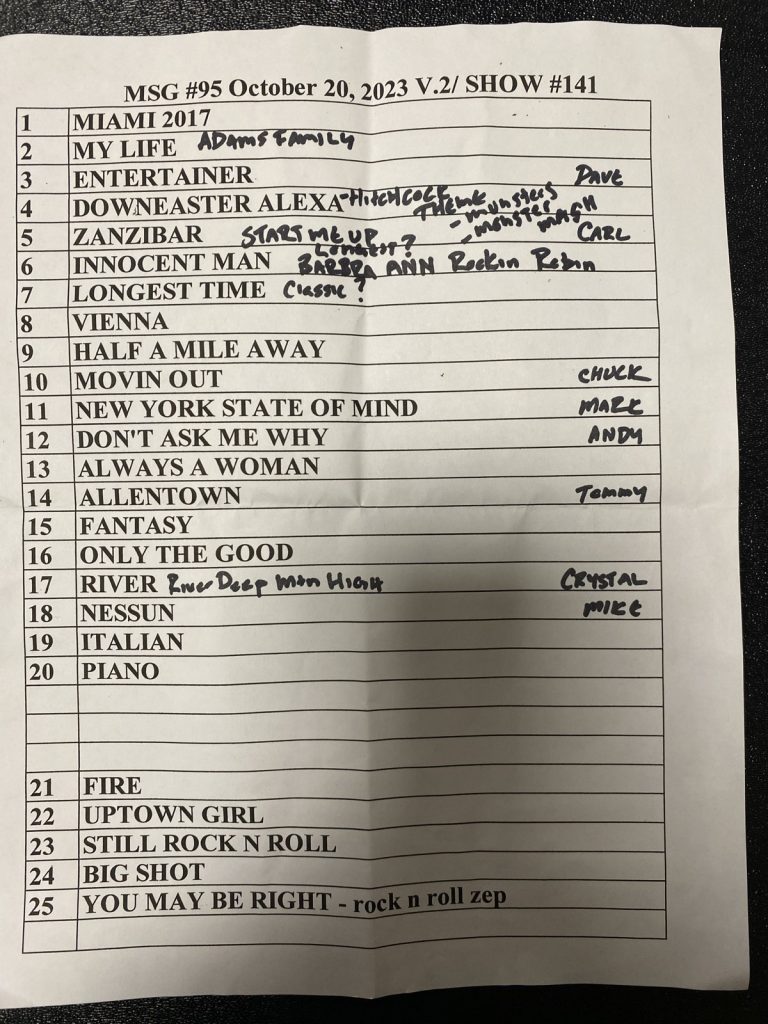 MSG #95 October 20, 2023 V.2/ SHOW #141
1 MIAMI 2017
2 MY LIFE ADAMS FAMILY
3 ENTERTAINER DAVE
4 DOWNEASTER ALEXA - HITCHCOCK THEME - munsters
- monster MASH
5 ZANZIBAR START ME UP CARL
Longest?
6 INNOCENT MAN BARBRA ANN Rockin Robin
7 LONGEST TIME Classic?
8 VIENNA
9 HALF A MILE AWAY
10 MOVIN OUT CHUCK
11 NEW YORK STATE OF MIND MARK
12 DON'T ASK ME WHY ANDY
13 ALWAYS A WOMAN
14 ALLENTOWN Tommy
15 FANTASY
16 ONLY THE GOOD
17 RIVER River Deep Mtn HIGH CRYSTAL
18 NESSUN MIKE
19 ITALIAN
20 PIANO
21 FIRE
22 UPTOWN GIRL
23 STILL ROCK N ROLL
24 BIG SHOT
25 YOU MAY BE RIGHT - rock n roll zep